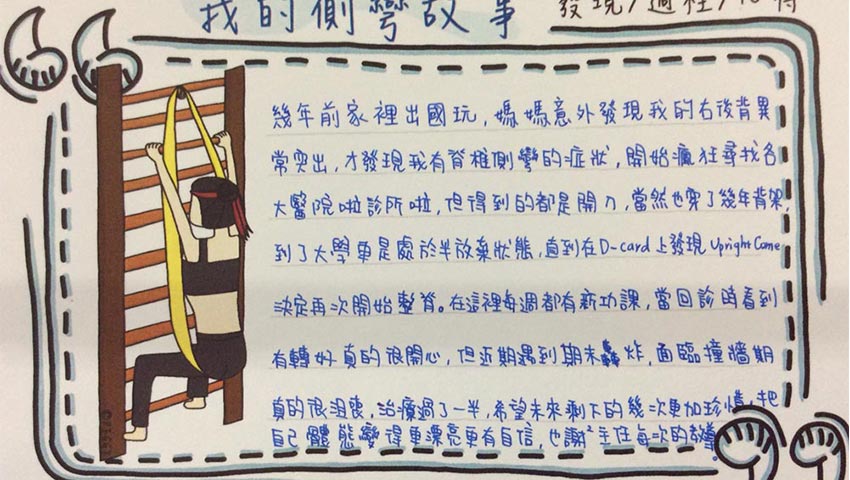 我的側彎故事
發現/過程/心得
幾年前家裡出國玩，媽媽意外發現我的右後背異
常突出，才發現我有脊椎側彎的症狀，開始瘋狂尋找各
大醫院啦診所啦，但得到的都是開刀，當然也穿了幾年背架，
到了大學更是處於半放棄狀態，直到在D-card上發現Upright Came
決定再次開始整脊。在這裡每週都有新功課，當回診時看到
有轉好真的很開心，但近期遇到期末轟炸，面臨撞牆期
真的很沮喪，治療過了一半，希望未來剩下的幾次更加珍惜，把
自己體態變得更漂亮更有自信，也謝²主任每次的教導。